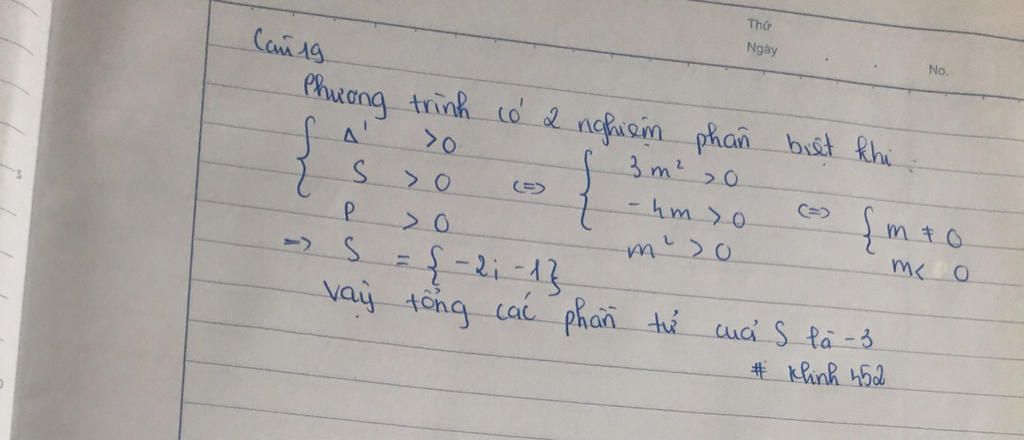 Thứ
Ngày
No.
Câu 19
Phương trình có 2 nghiệm phân biệt khi:
{ Δ' > 0 <=> { 3m² > 0 <=> { m ≠ 0
S > 0 - 4m > 0 m < 0
P > 0 m² > 0
=> S = {-2; -1}
Vậy tổng các phần tử của S là -3
# Khinh 452